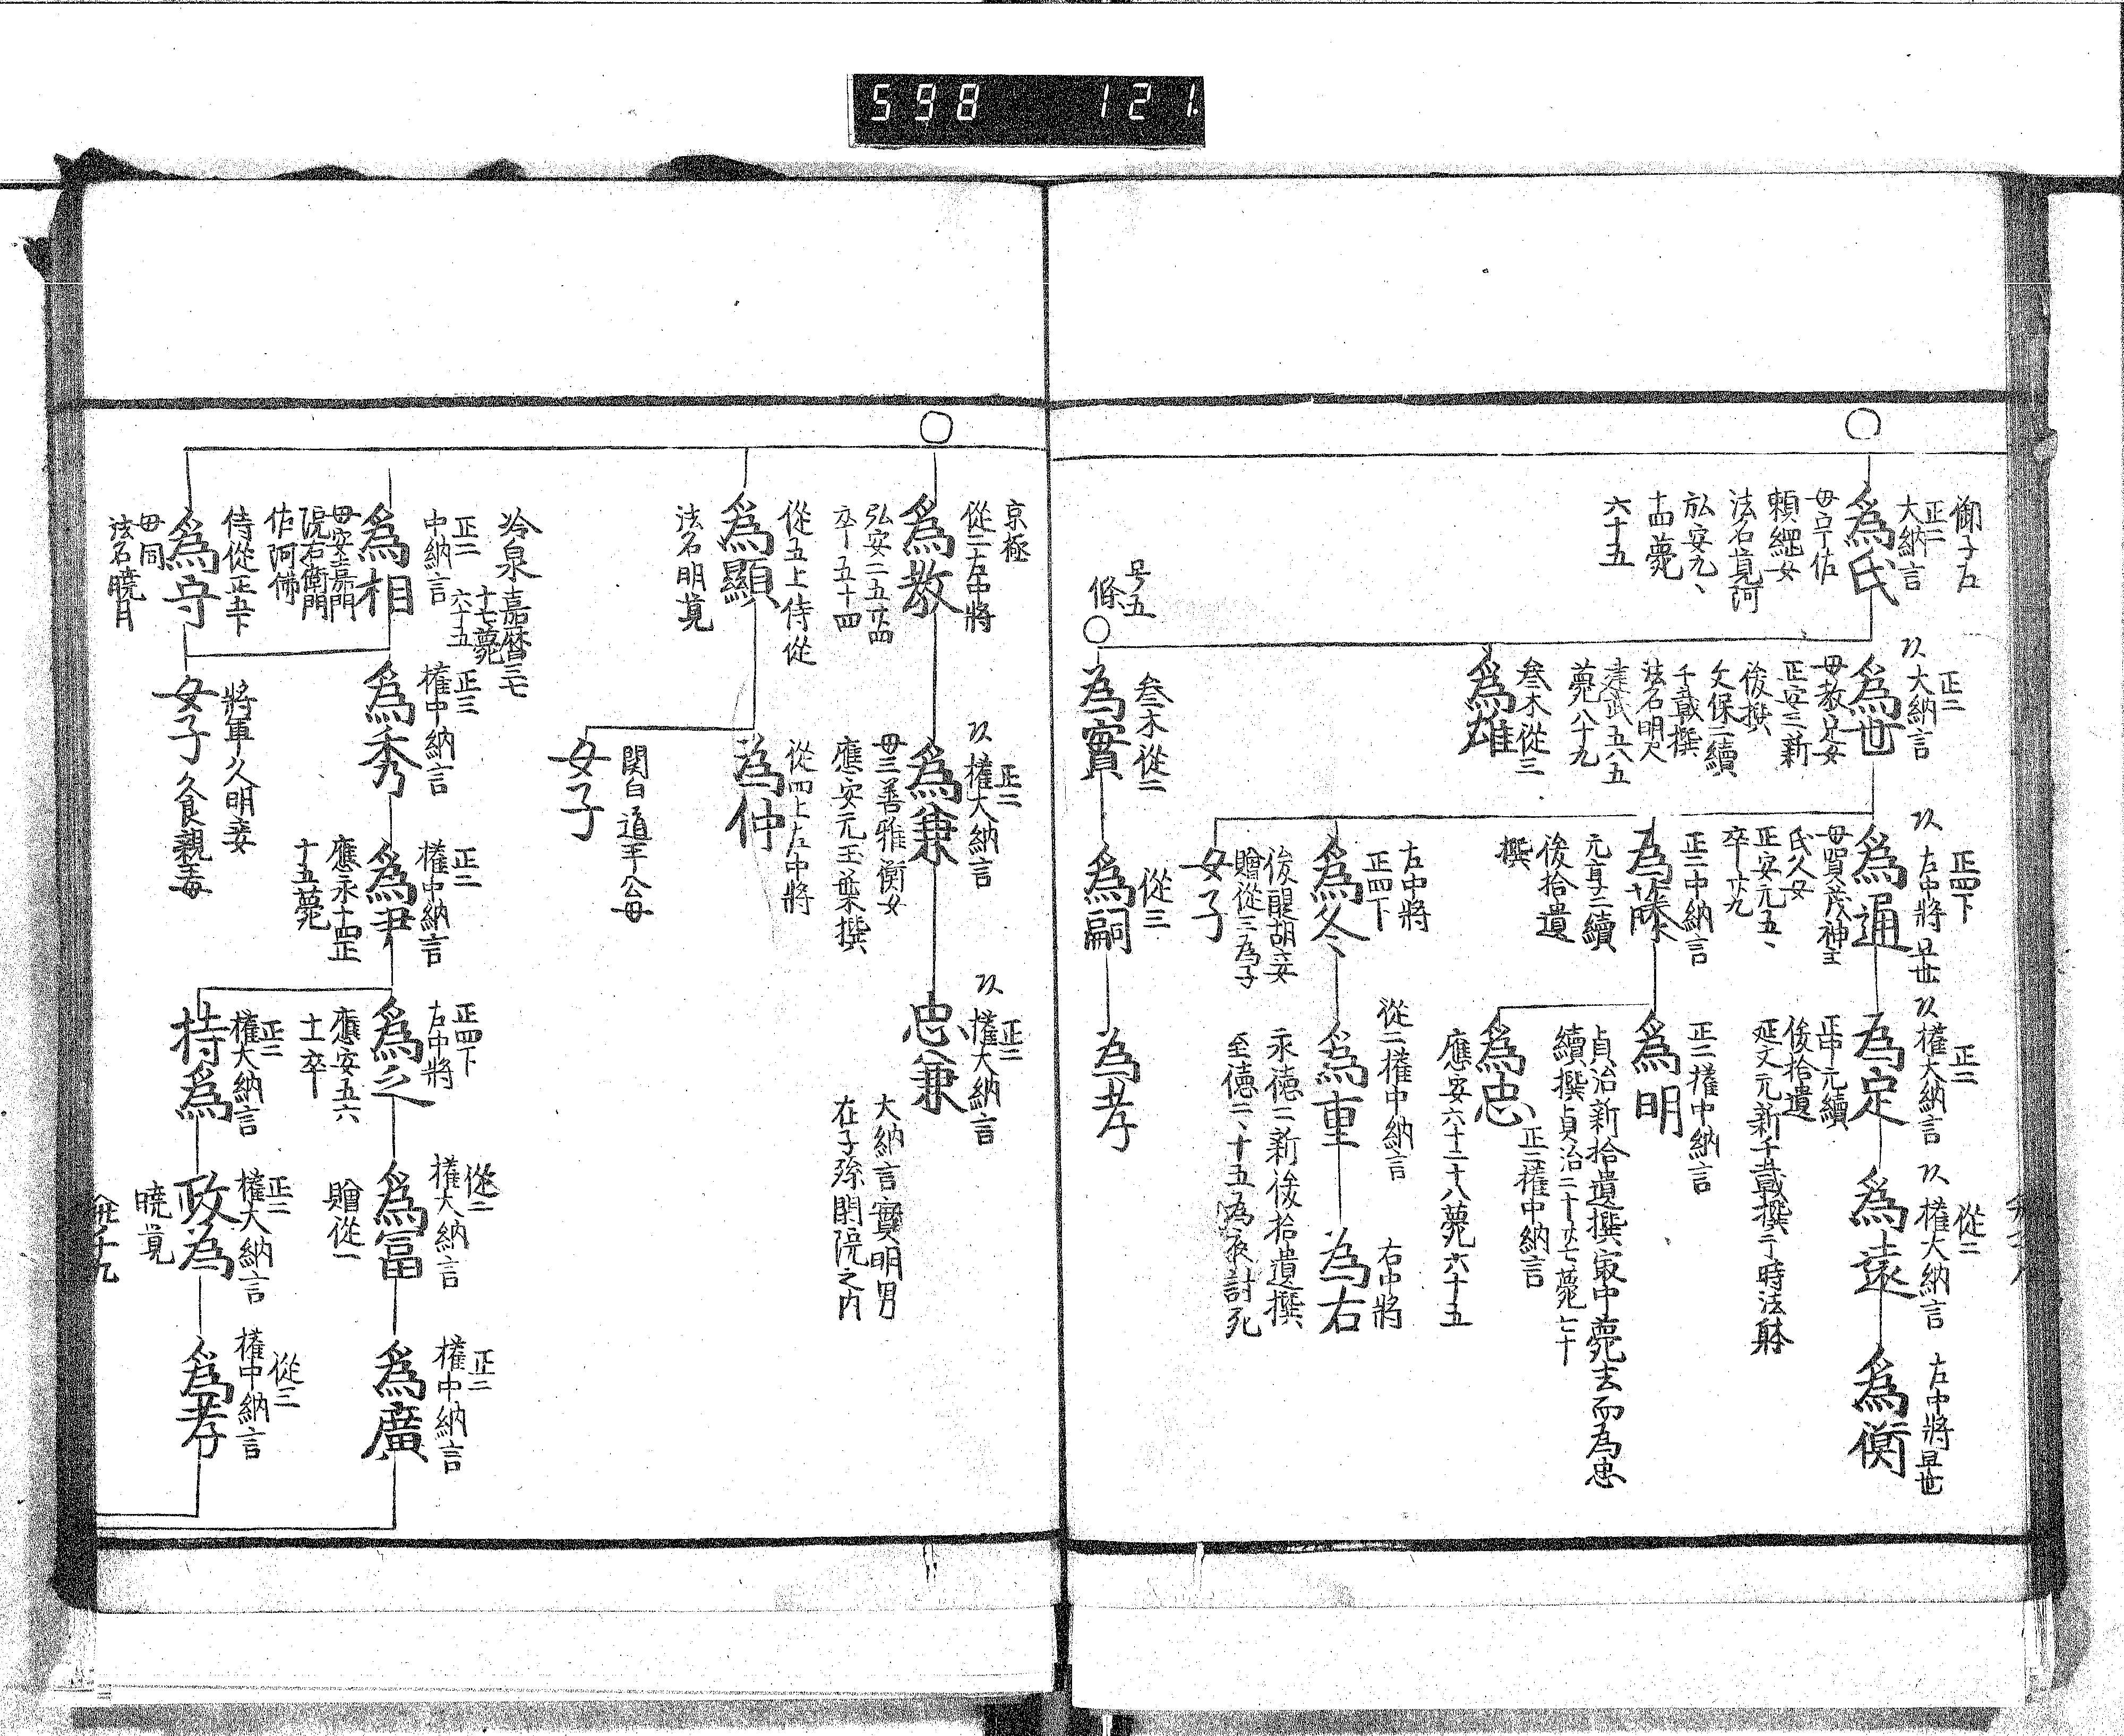 598 121
御子左
正二
大納言
為氏
母宇佐
頼綱女
法名覚阿
弘安九、
十四薨
六十五
正二
大納言
為世
母教定女
正安三新
後撰
文保二續
千載撰
法名明尺
建武五六五
薨八十九
叁木從三
為雄
号五
條
叁木從二
為實
正四下
左中將早世
為通
母賀茂神主
氏久女
正安元五、
卒廿九
正二中納言
為藤
元亨三續
後拾遺
撰
左中將
正四下
為冬
後醍胡妾
贈從三為子
女子
從三
為嗣
正二
權大納言
為定
正中元續
後拾遺
延文元新千載撰于時法躰
正二權中納言
為明
貞治新拾遺撰㝡中薨去而為忠
續撰貞治三十廿七薨七十
為忠
正二權中納言
應安六十二十八薨六十五
從二權中納言
為重
永德二新後拾遺撰
至德二、十五為夜討死
為孝
從二
權大納言
為遠
右中將
為右
左中將早世
為衡
京極
從二右中將
為教
弘安二五廿四
卒五十四
從五上侍從
為顯
法名明覚
冷泉
嘉曆三七
十七薨
六十五
正二
中納言
為相
母安嘉門
院右衛門
佐阿佛
侍從正五下
為守
母同
法名曉月
正二
權大納言
為兼
母三善雅衡女
應安元玉葉撰
從四上左中將
為仲
関白道平公母
女子
正三
權中納言
為秀
將軍久明妾
女子
久良親王母
正二
權中納言
為尹
應永廿四正
十五薨
正二
權大納言
忠兼
大納言實明男
在子孫閑院之内
正四下
右中將
為之
應安五六
十一卒
正二
權大納言
持為
從二
權大納言
為冨
贈從一
正二
權大納言
政為
曉覚
正二
權中納言
為廣
從三
權中納言
為孝